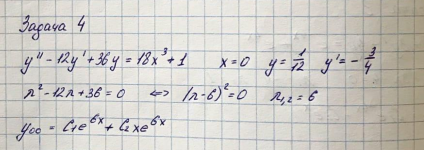 Задача 4
y'' - 12y' + 36y = 18x³ + 1    x = 0    y = 1/12    y' = - 3/4
r² - 12r + 36 = 0 <=> (r - 6)² = 0    r₁,₂ = 6
y₀₀ = C₁e⁶ˣ + C₂xe⁶ˣ